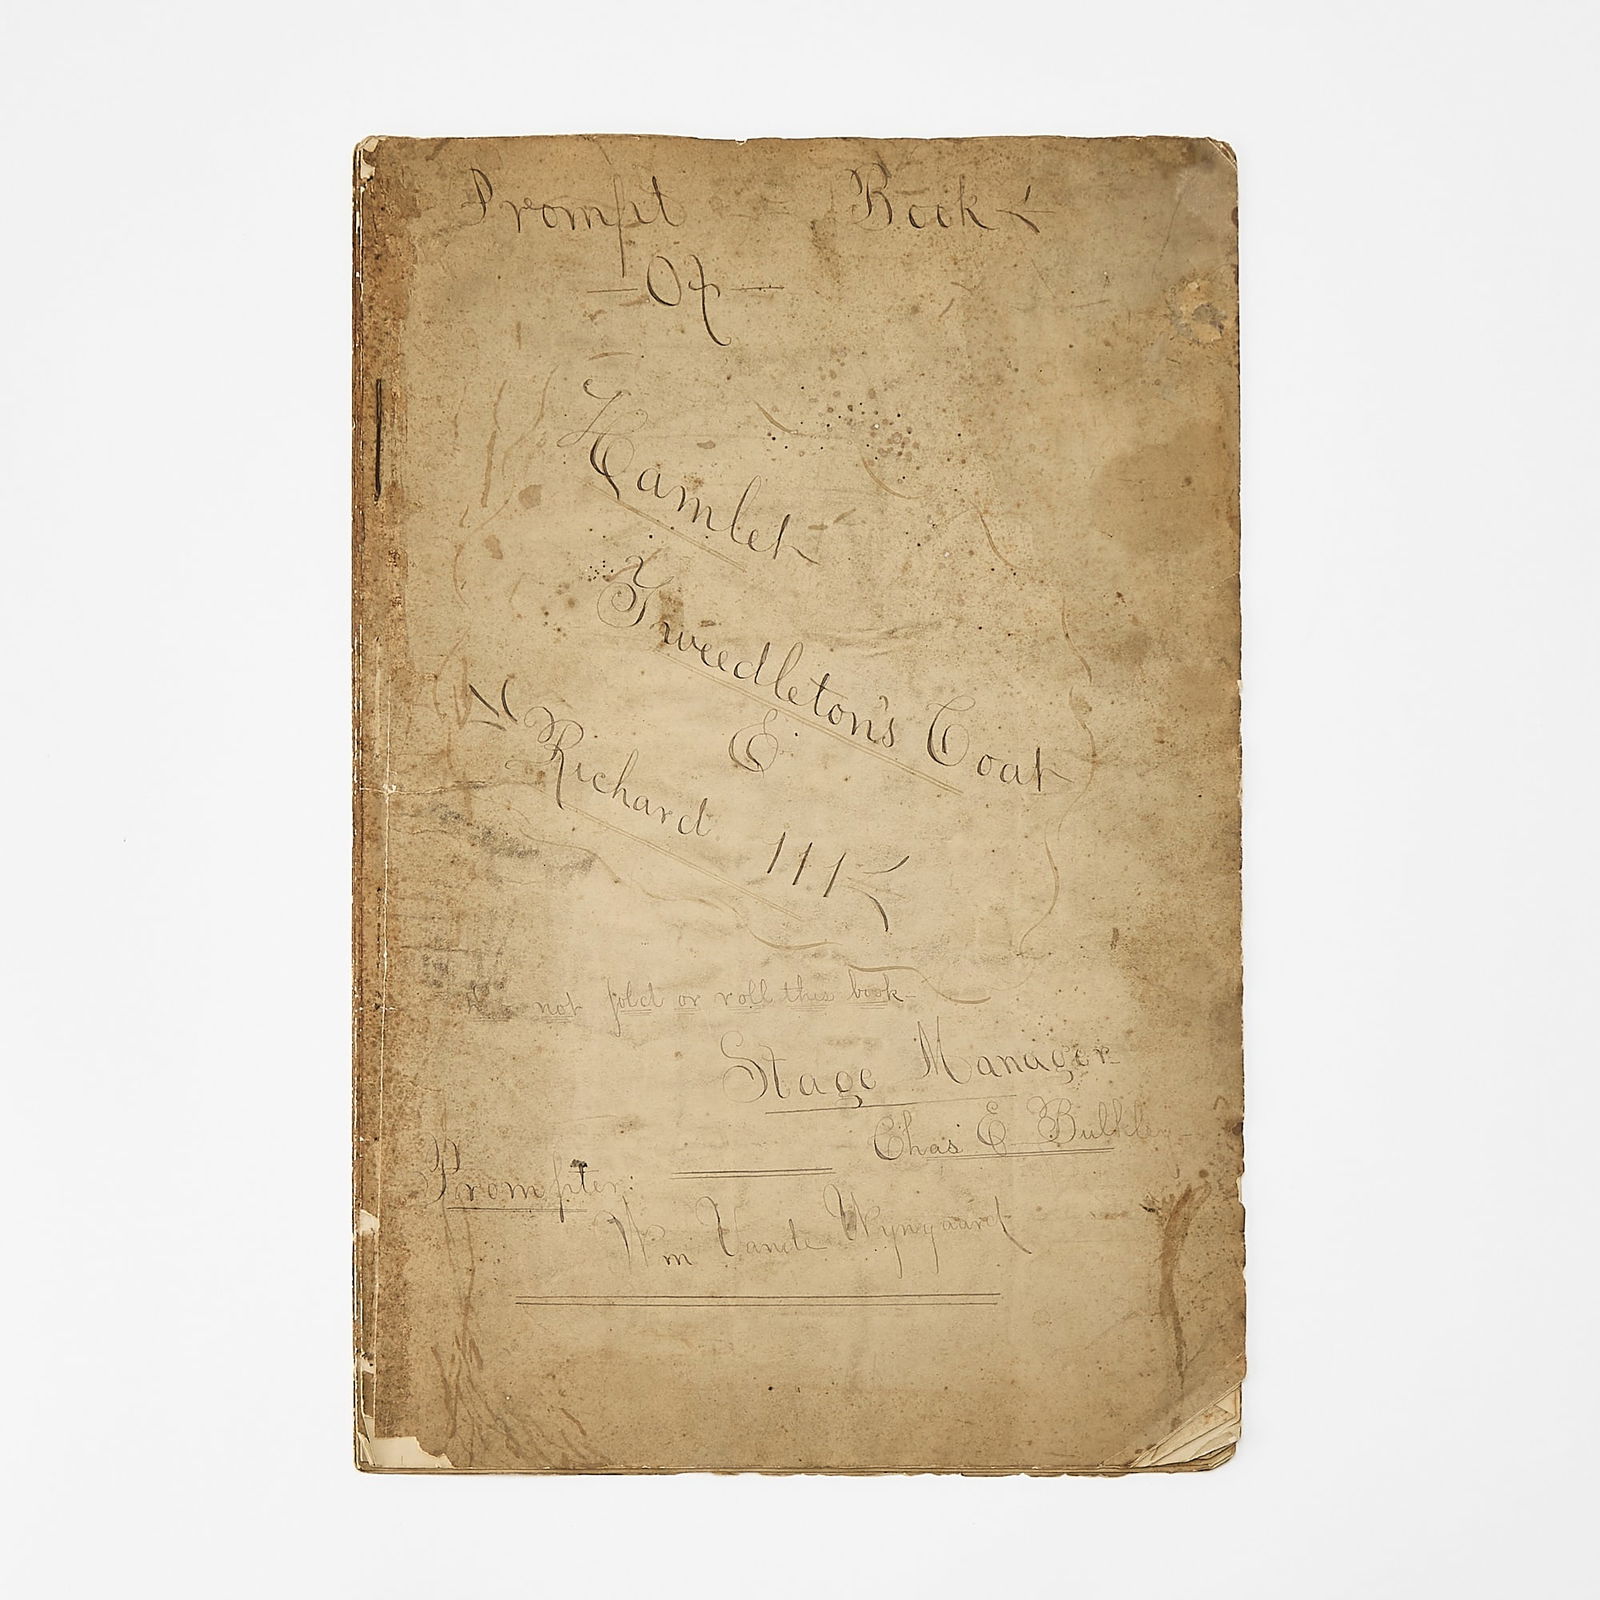 Prompt Book
— Of —
Hamlet
Tweedleton's Coat
&
Richard III
Do not fold or roll this book —
Stage Manager
Chas E Bulkley
Prompter:
Wm Vande Wyngaard